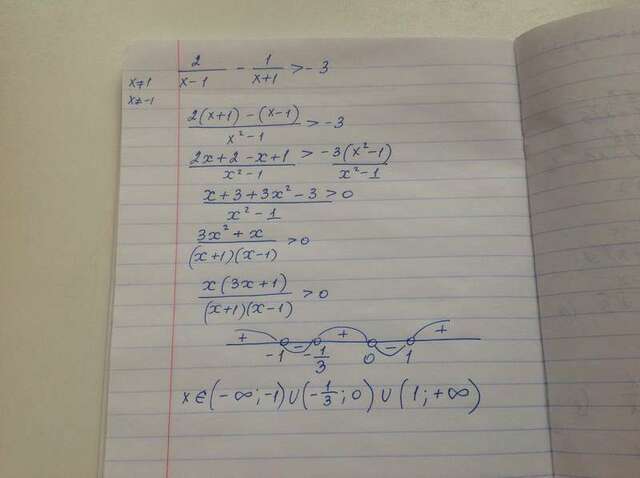 x≠1
x≠-1
2/(x-1) - 1/(x+1) > -3
(2(x+1) - (x-1))/(x²-1) > -3
(2x+2-x+1)/(x²-1) > -3(x²-1)/(x²-1)
(x+3+3x²-3)/(x²-1) > 0
(3x²+x)/((x+1)(x-1)) > 0
(x(3x+1))/((x+1)(x-1)) > 0
+ - + - +
-1 -1/3 0 1
x∈(-∞;-1)∪(-1/3;0)∪(1;+∞)